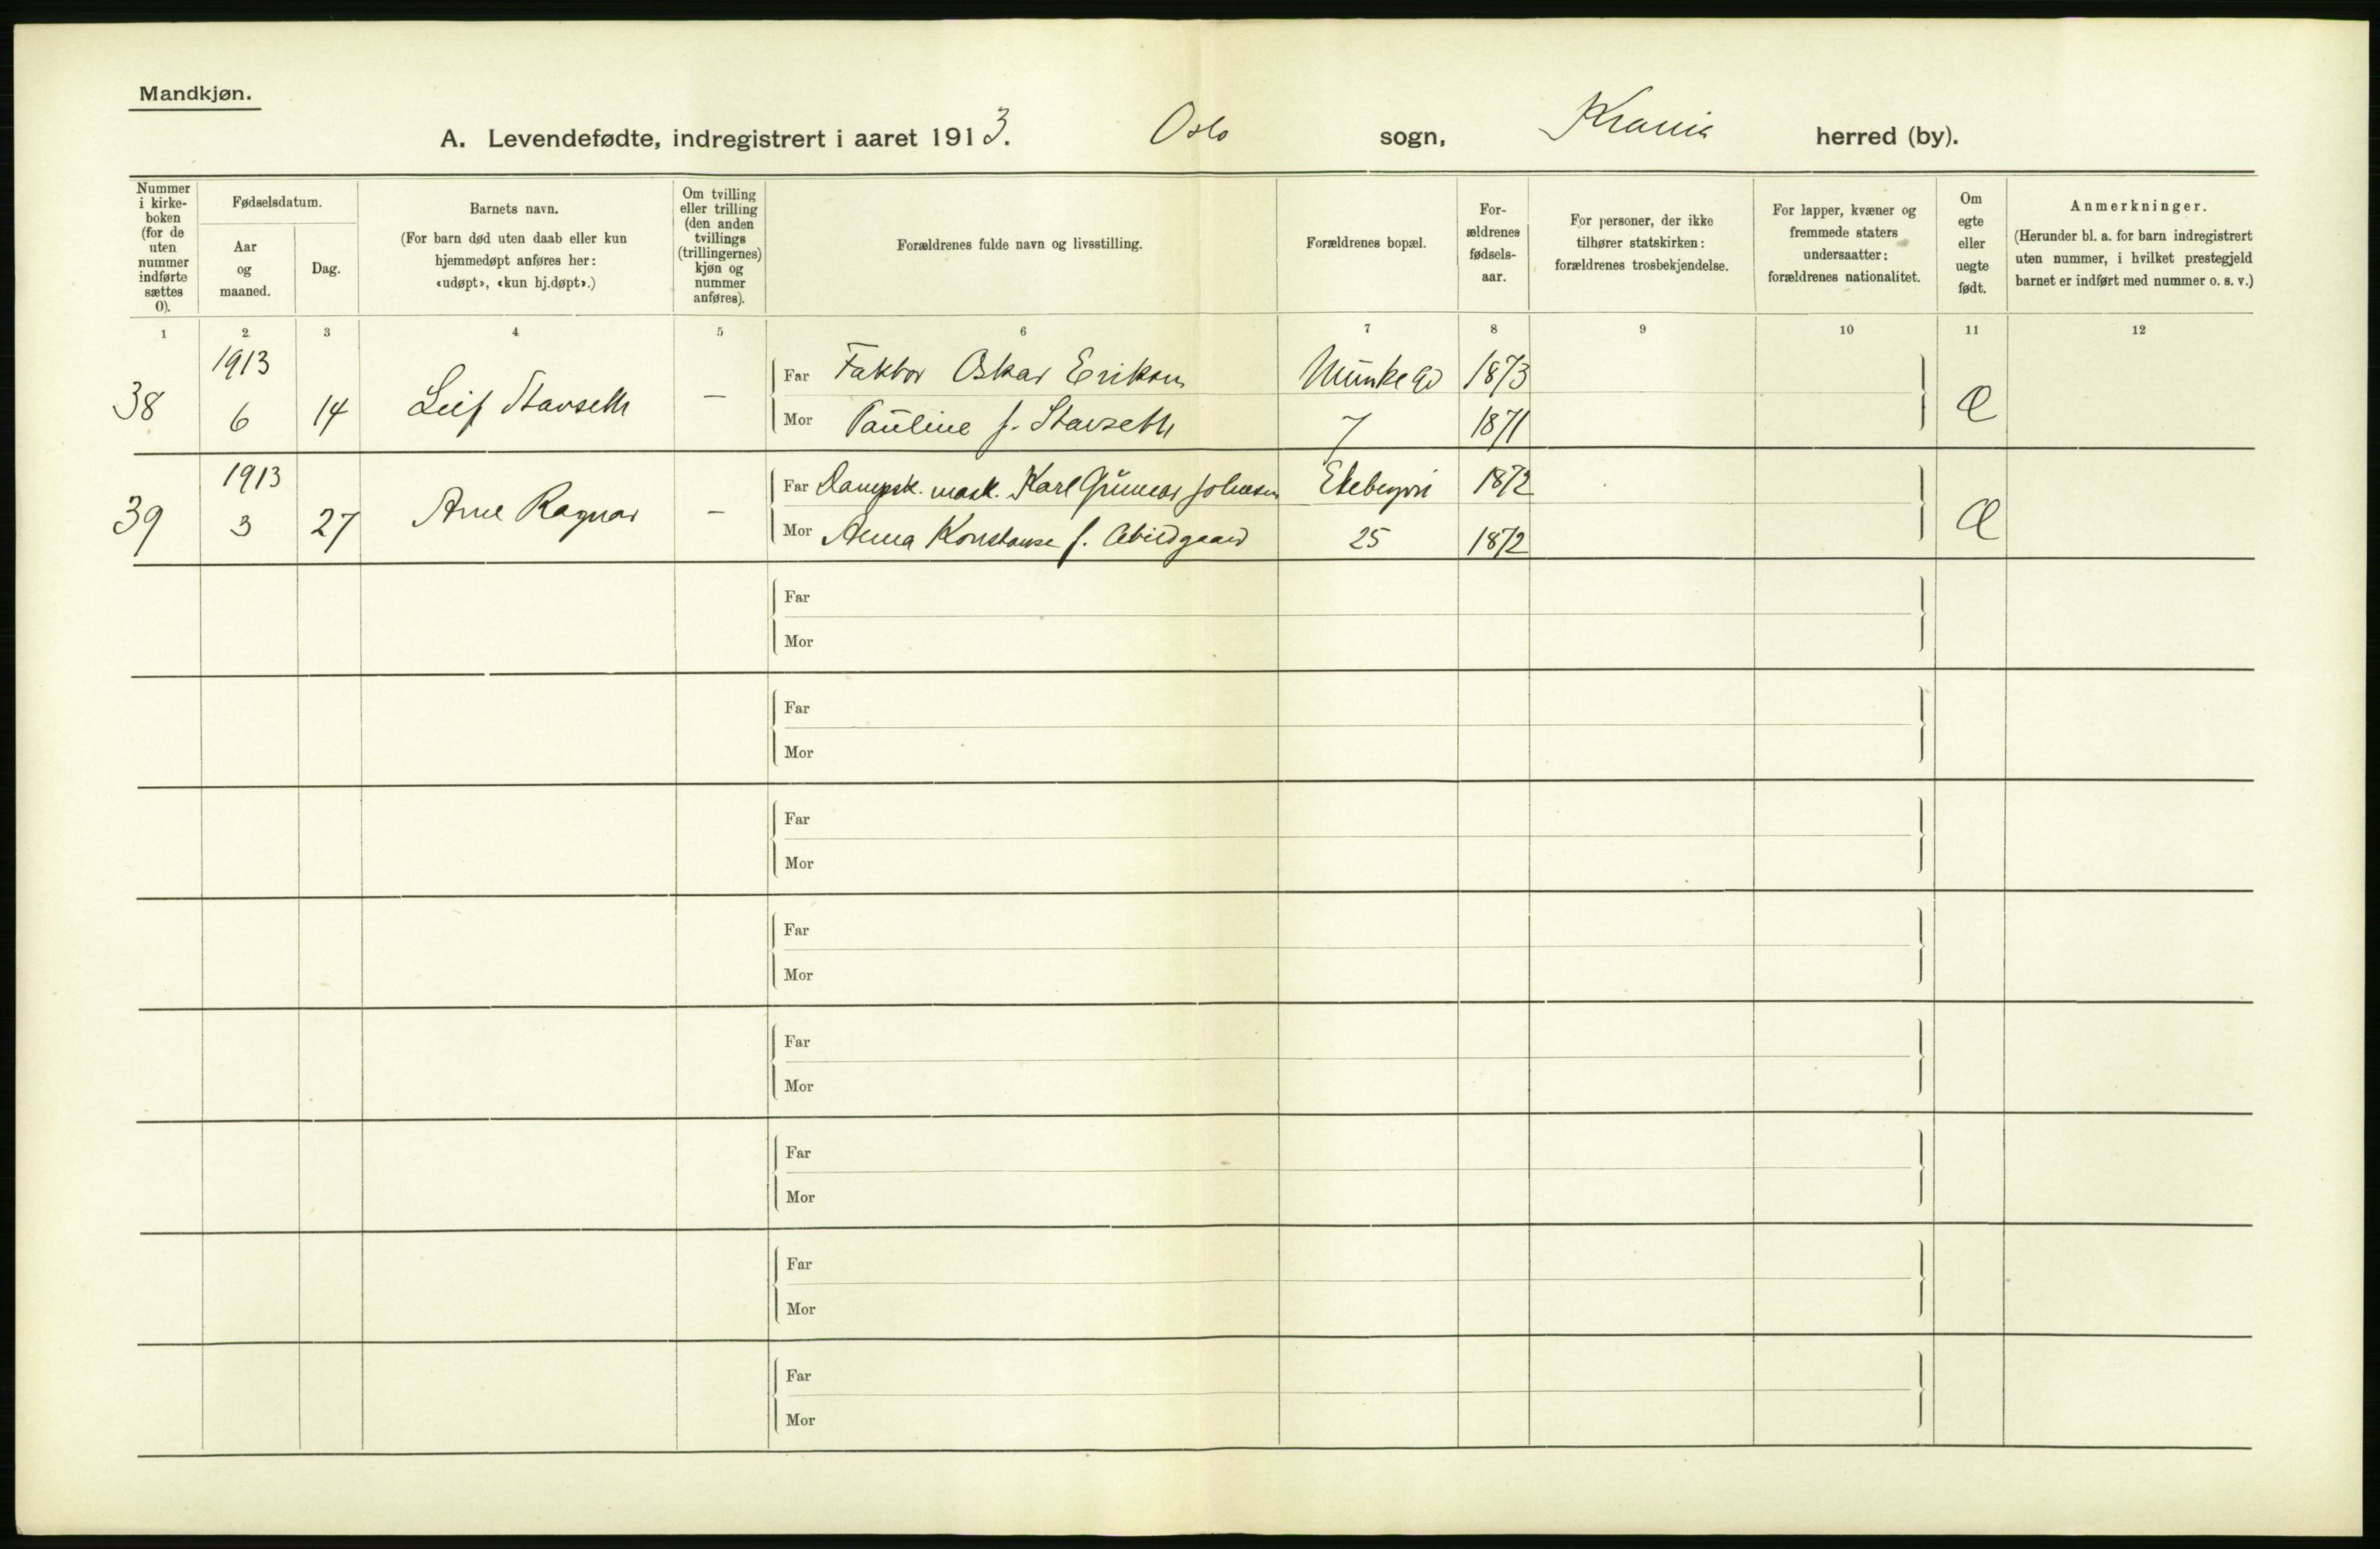 Mandkjøn.
A. Levendefødte, indregistrert i aaret 1913. Oslo sogn, Krania herred (by).
Nummer i kirke- boken (for de uten nummer indførte sættes 0).
Fødselsdatum.
Aar og maaned.
Dag.
Barnets navn.
(For barn død uten daab eller kun hjemmedøpt anføres her: «udøpt», «kun hj.døpt».)
Om tvilling eller trilling (den anden tvillings (trillingernes) kjøn og nummer anføres).
Forældrenes fulde navn og livsstilling.
Forældrenes bopæl.
For- ældrenes fødsels- aar.
For personer, der ikke tilhører statskirken: forældrenes trosbekjendelse.
For lapper, kvæner og fremmede staters undersaatter: forældrenes nationalitet.
Om egte eller uegte født.
Anmerkninger.
(Herunder bl. a. for barn indregistrert uten nummer, i hvilket prestegjeld barnet er indført med nummer o. s. v.)
1 2 3 4 5 6 7 8 9 10 11 12
38 1913 6 14 Leif Stavseth — Far Faktor Oskar Eriksen Munkegd 1873 Æ
Mor Pauline f. Stavseth 7 1871
39 1913 3 27 Arne Ragnar — Far Dampsk. mask. Karl Gunnar Johnsen Ekebergvei 1872 Æ
Mor Anna Konstanse f. Abildgaard 25 1872
Far
Mor
Far
Mor
Far
Mor
Far
Mor
Far
Mor
Far
Mor
Far
Mor
Far
Mor